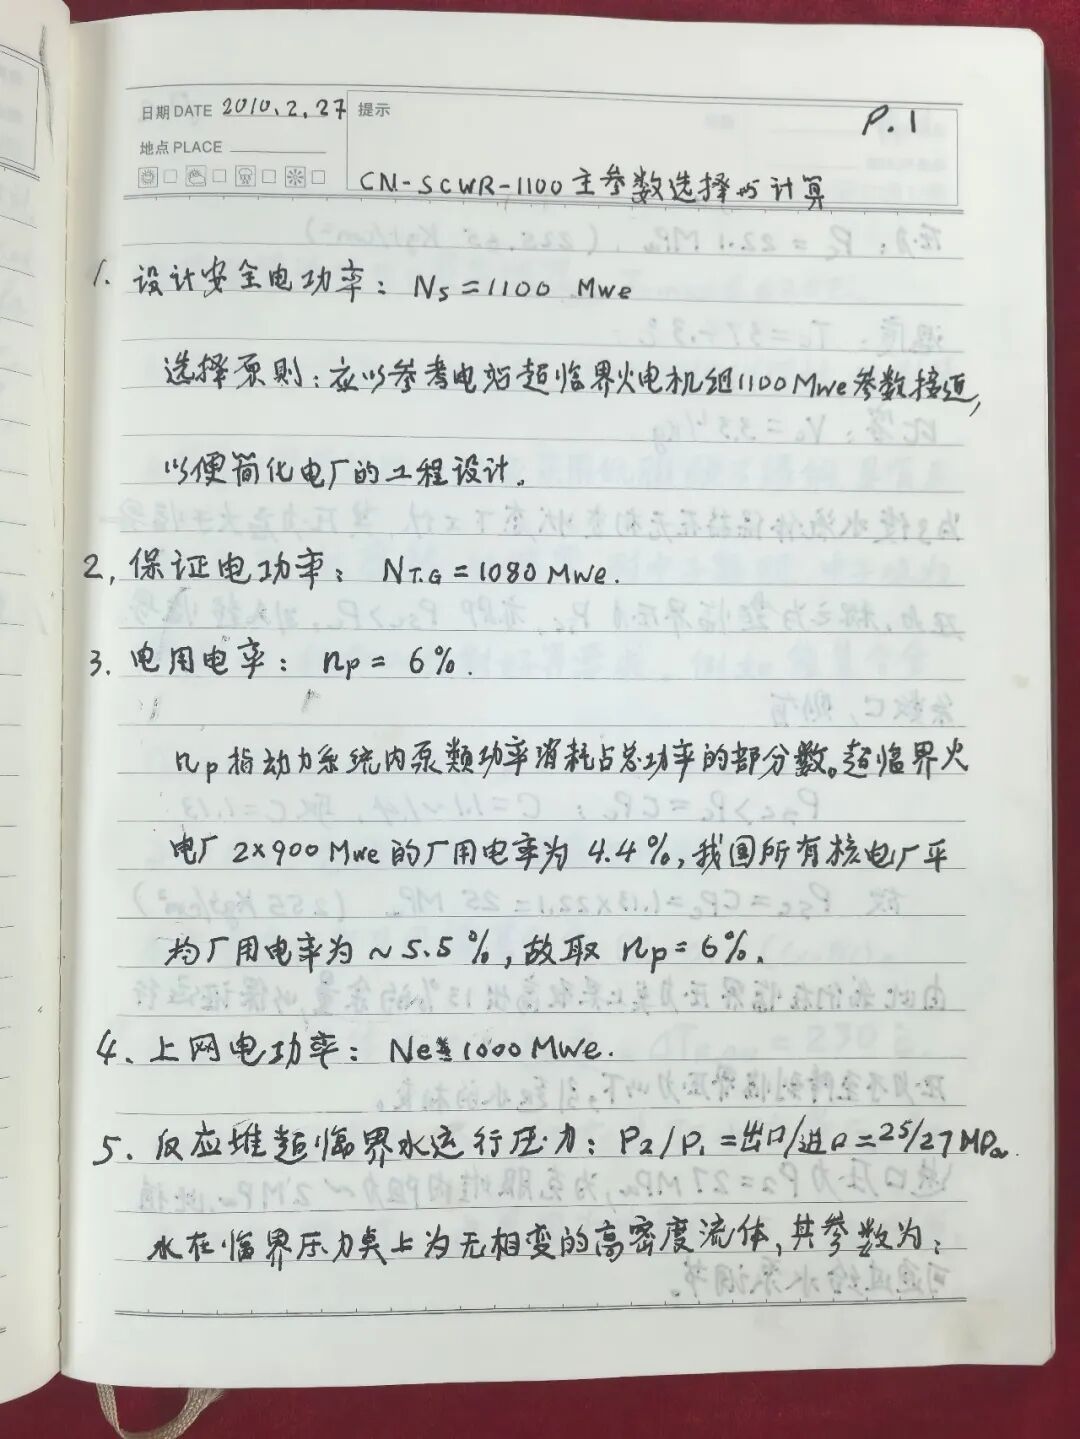 日期 DATE 2010.2.27 提示 P.1
地点 PLACE
CN-SCWR-1100主参数选择与计算
1. 设计安全电功率: Ns=1100 Mwe
选择原则:应以参考电站超临界火电机组1100Mwe参数接近,
以便简化电厂的工程设计。
2, 保证电功率: NT.G=1080 MWe.
3. 电用电率: np= 6%.
np指动力系统内泵类功率消耗占总功率的部分数。超临界火
电厂 2×900 Mwe的厂用电率为 4.4%,我国所有核电厂平
均厂用电率为~5.5%,故取 np=6%.
4、上网电功率: Ne 1000 MWe.
5、反应堆超临界水运行压力: P2/P1=出口/进口=25/27MPa.
水在临界压力点上为无相变的高密度流体,其参数为: